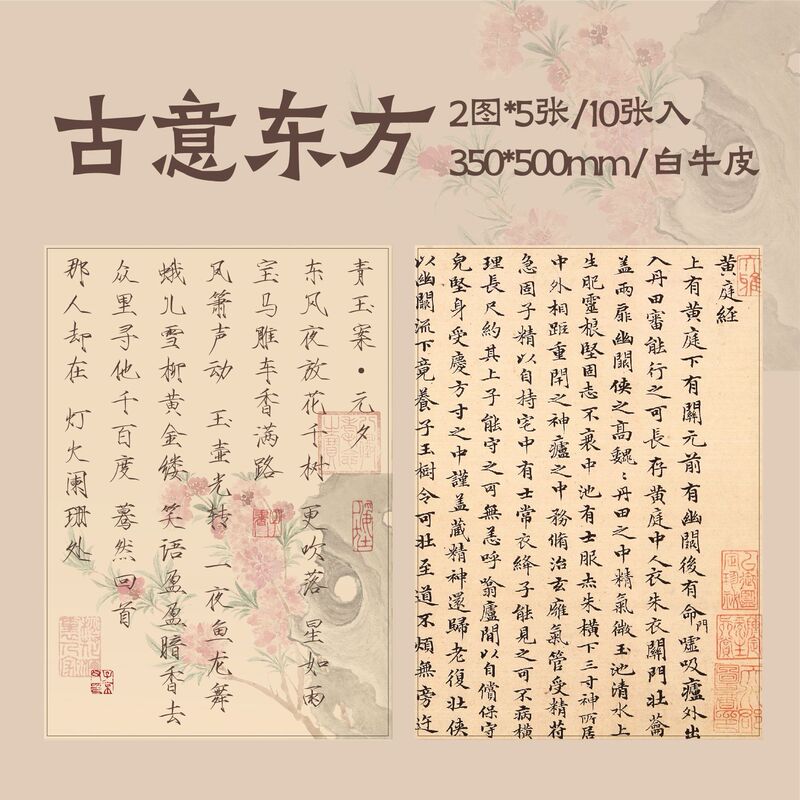 古意东方
2图*5张/10张入
350*500mm/白牛皮
青玉案·元夕
东风夜放花千树 更吹落 星如雨
宝马雕车香满路
凤箫声动 玉壶光转 一夜鱼龙舞
蛾儿雪柳黄金缕 笑语盈盈暗香去
众里寻他千百度 蓦然回首
那人却在 灯火阑珊处
黄庭經
上有黄庭下有關元前有幽闕後有命門噓吸廬外出
入丹田審能行之可長存黄庭中人衣朱衣關門壮蘥
蓋兩扉幽闕侠之髙魏〻丹田之中精氣微玉池清水上
生肥靈根堅固志不衰中池有士服赤朱横下三寸神所居
中外相距重閇之神廬之中務脩治玄廱氣管受精符
急固子精以自持宅中有士常衣絳子能見之可不病横
理長尺約其上子能守之可無恙呼噏廬間以自償保守
皃堅身受慶方寸之中謹盖藏精神還歸老復壮侠
以幽闕流下竟養子玉樹令可壮至道不煩無旁迕